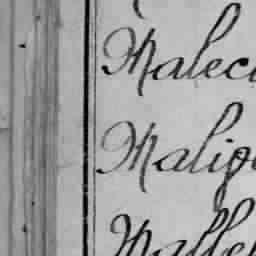 Malec
Malig
Malle